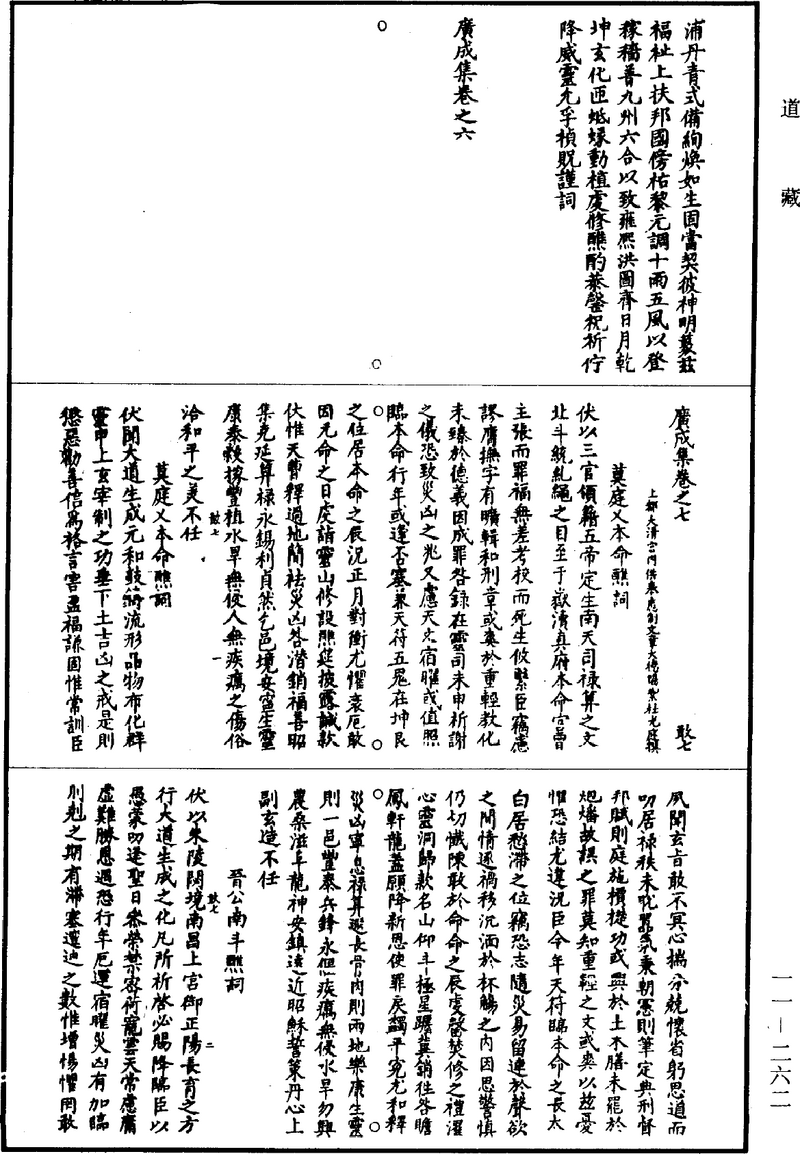 道藏
浦丹青式備絢煥如生固當契彼神明蔓茲
福祉上扶邦國傍祐黎元調十雨五風以登
稼穡普九州六合以致雍熙洪圖齊日月乾
坤玄化匝蚳蝝動植虔修醮酌恭罄祝祈佇
降威靈允孚禎貺謹詞
廣成集卷之六
廣成集卷之七
敢七
莫庭乂本命醮詞
伏以三官領籍五帝定生南天司祿算之文
北斗統乩繩之目至于嶽瀆真府本命宮曹
主張而罪福無差考校而死生攸繫臣竊慮
謬膺撫字有曠緝和刑章或爽於重輕教化
未臻於德義因成罪咎錄在靈司未申祈謝
之儀恐致災凶之兆又慮天文宿曜或值照
臨本命行年或逢否塞兼天符五鬼在坤艮
之位居本命之辰況正月對衝尤懼衰厄敢
因元命之日虔請靈山修設醮筵披露誠款
伏惟天曹釋過地簡祛災凶咎潛銷福善昭
集克延算祿永錫利貞然乞邑境安寧生靈
康泰穀稼豐稙水旱無侵人無疾癘之傷俗
洽和平之美不任
敢七
一
莫庭乂本命醮詞
伏聞大道生成元和鼓籥流形品物布化群
靈申上玄宰制之功垂下土吉凶之戒是則
懲惡勸善信為格言害盈福謙固惟常訓臣
夙聞玄旨敢不冥心揣分兢懷省躬思道而
叨居祿秩未耽囂氛秉朝憲則筆定典刑督
邦賦則庭施檟楚功或興於土木膳未罷於
炮燔故誤之罪莫知重輕之文或爽以茲憂
懼恐結尤違況臣今年天符臨本命之辰太
白居愁滯之位竊恐志隨災易留連於聲欲
之間情逐禍移沉湎於杯觴之內因思警慎
仍切懺陳敢於命命之辰虔罄焚修之禮濯
心靈洞歸款名山仰斗極星躔冀銷往咎瞻
鳳軒龍蓋願降新恩使罪戾蠲平冤尤和釋
災凶寧息祿算遐長骨肉則兩地樂康生靈
則一邑豐泰兵鋒永偃疾癘無侵水旱勿興
農桑滋阜龍神安鎮遠近昭穌誓策丹心上
副玄造不任
晉公南斗醮詞
敢七
二
伏以朱陵闕境南昌上宮御正陽長育之方
行大道生成之化凡所祈啓必賜降臨臣以
愚蒙叨逢聖日泰榮禁密荷寵雲天常慮庸
虛難勝恩遇恐行年厄運宿曜災凶有加臨
刑剋之期有滯塞邅迍之數惟增惕懼罔敢
一一—二六二